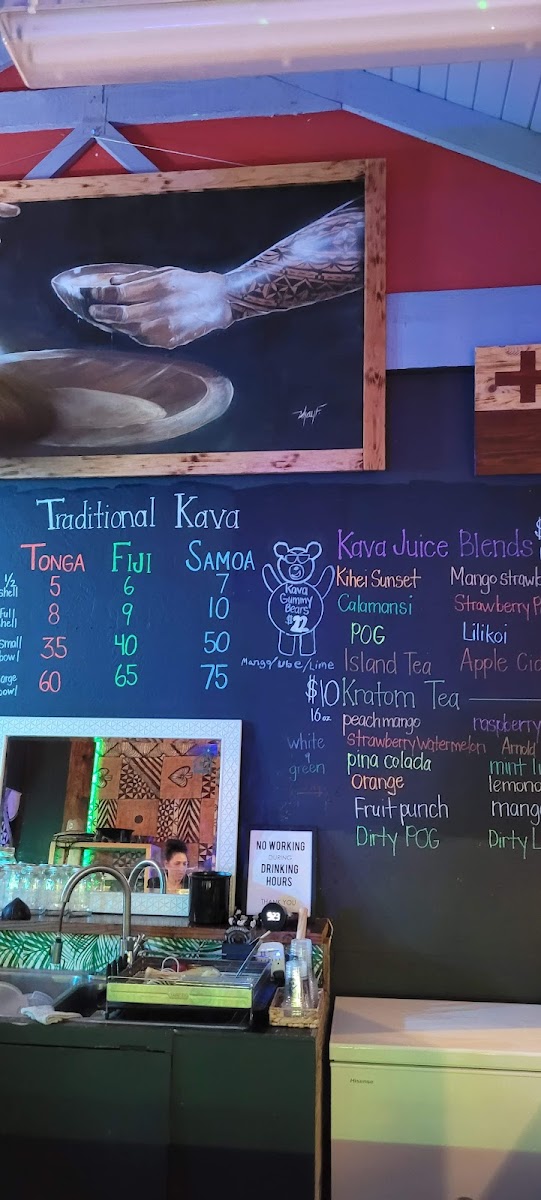 Traditional Kava
TONGA FIJI SAMOA
1/2 shell 5 6 7
8 9 10
35 40 50
60 65 75
bowl
Kava
Gummy
Bears
$22
Mango/Ube/Lime
Kava Juice Blends $
Kihei Sunset Mango strawb
Calamansi Strawberry P
POG Lilikoi
Island Tea Apple Cid
$10 Kratom Tea
16oz
white
green
peach mango raspberry
strawberry watermelon Arnold
pina colada mint
orange lemona
Fruit punch mang
Dirty POG Dirty L
NO WORKING
DURING
DRINKING
HOURS
THANK YOU
923
Hisense